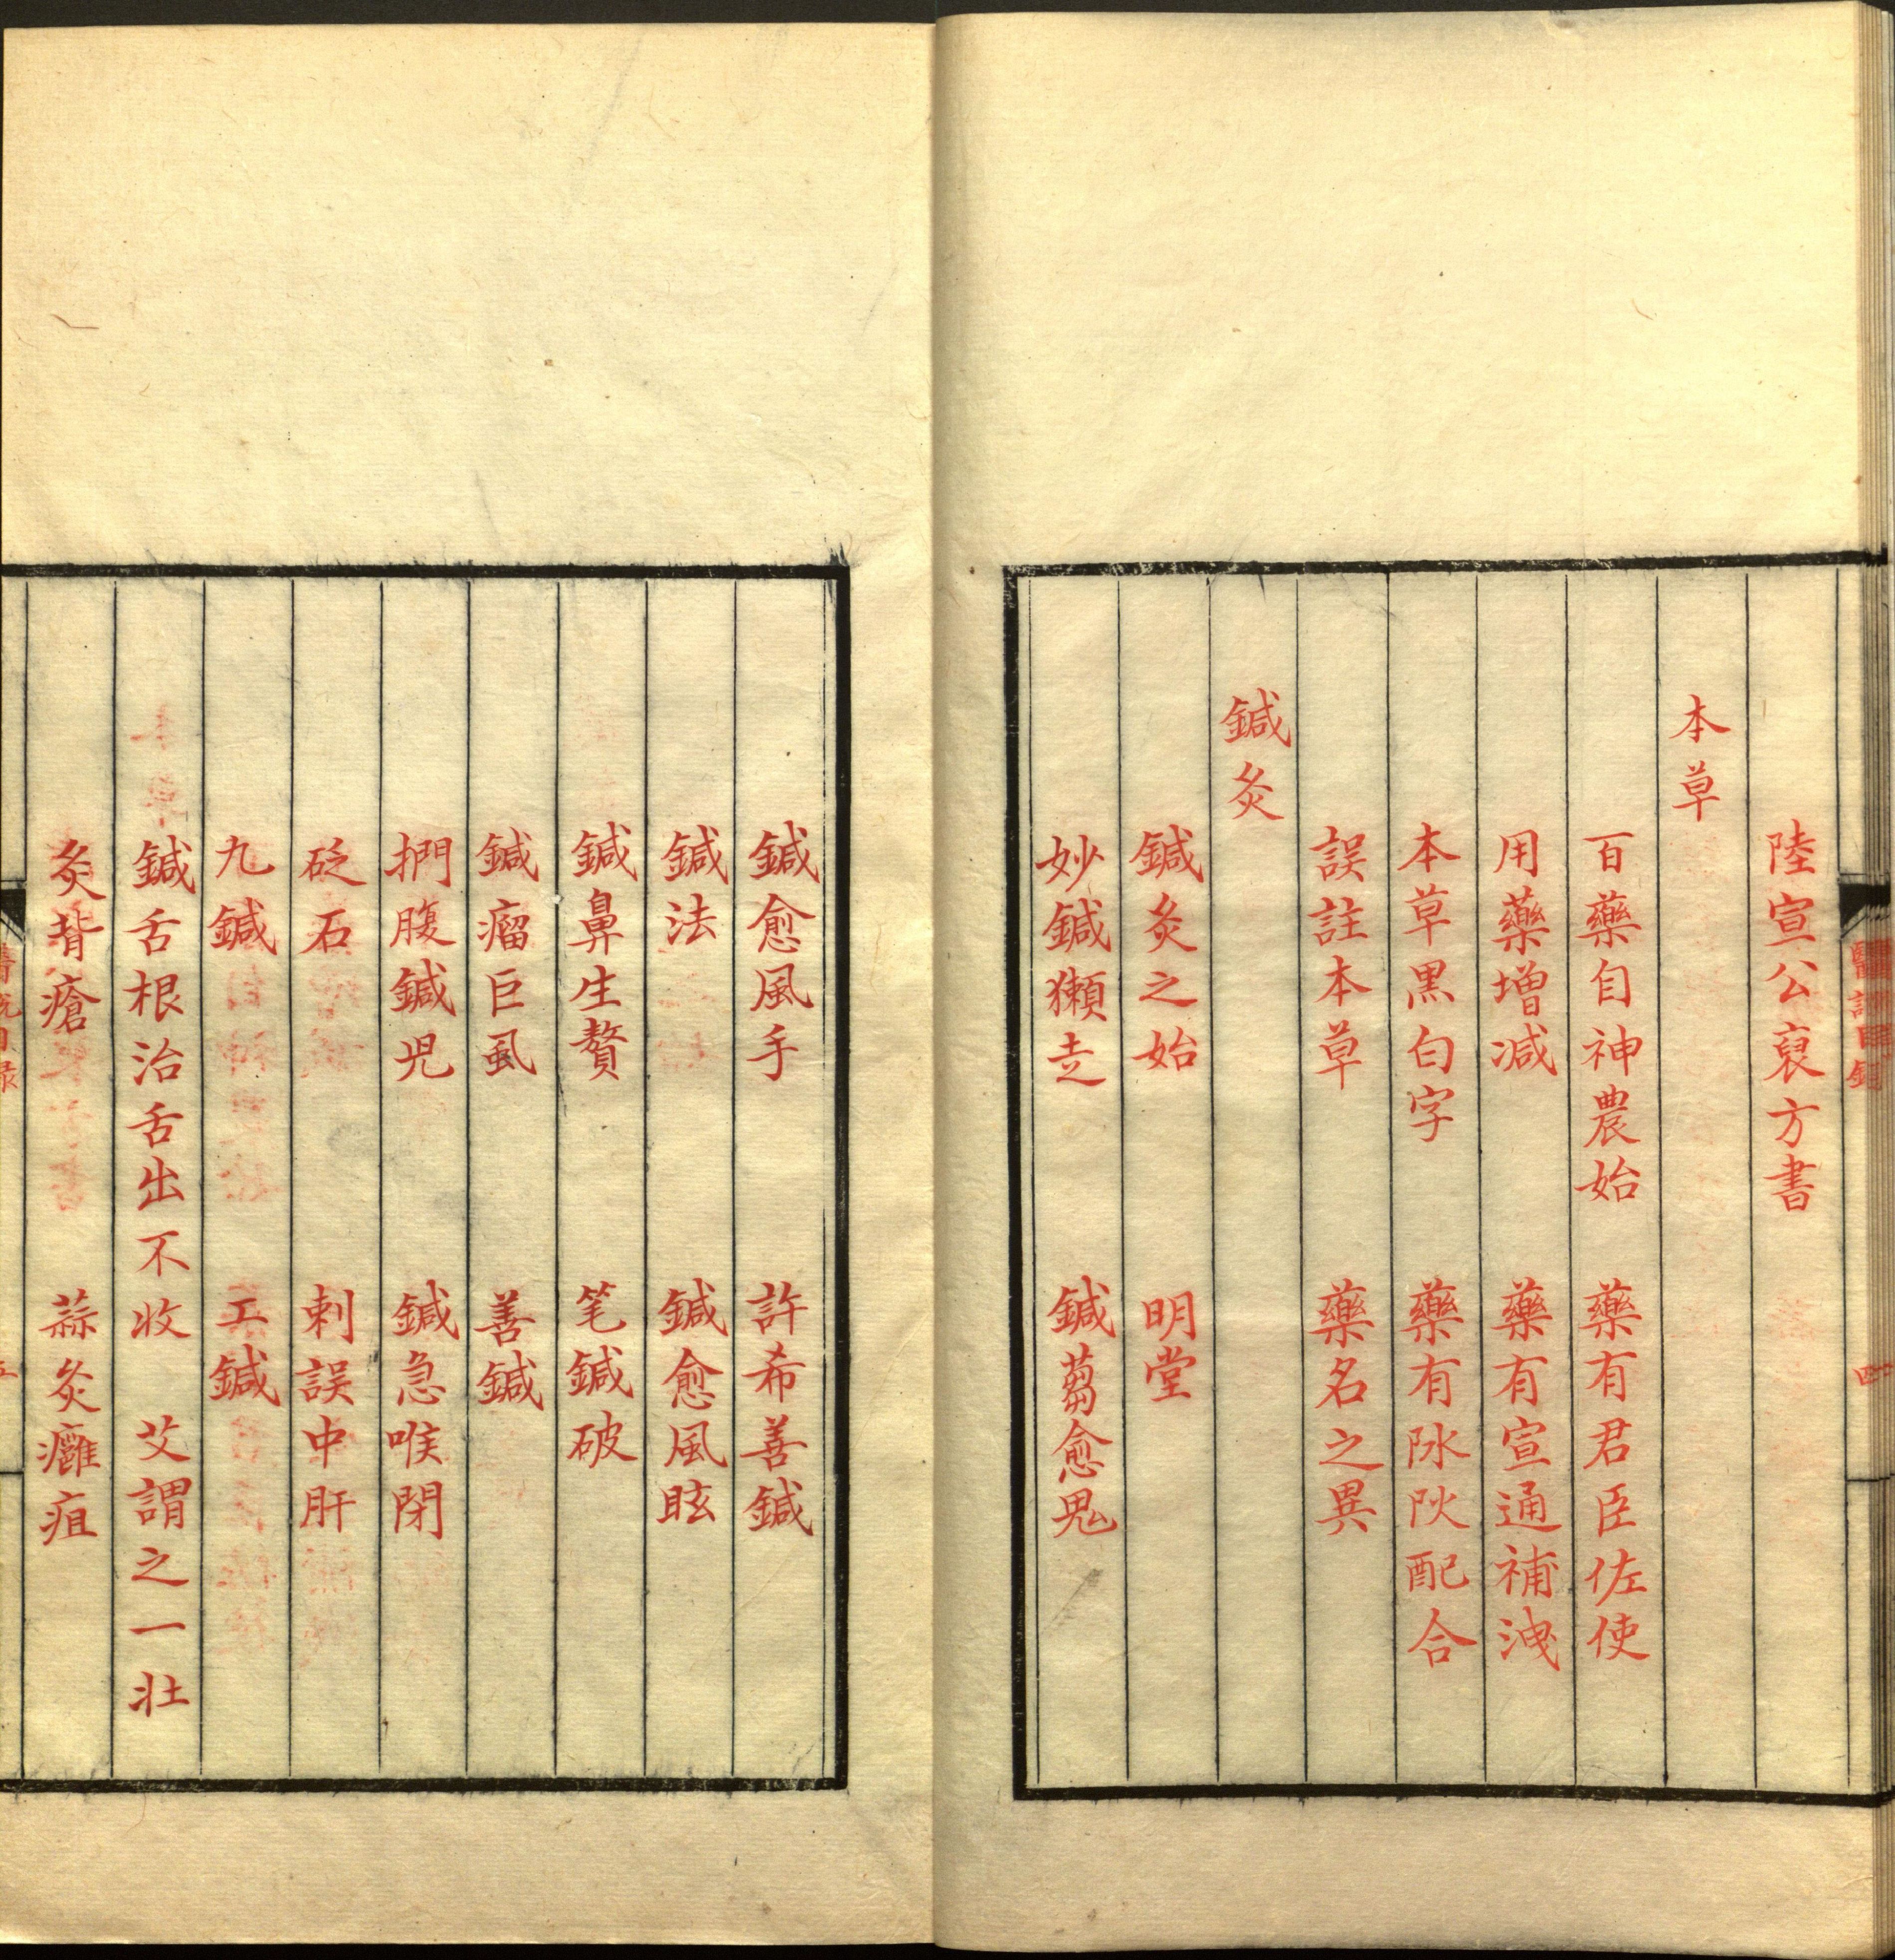 陸宣公裒方書
本草
百藥自神農始　藥有君臣佐使
用藥增減　藥有宣通補洩
本草黑白字　藥有阥阦配合
誤註本草　藥名之異
鍼灸
鍼灸之始　明堂
妙鍼獺走　鍼芻愈鬼
鍼愈風手　許希善鍼
鍼法　鍼愈風眩
鍼鼻生贅　笔鍼破
鍼瘤巨虱　善鍼
捫腹鍼児　鍼急喉閉
砭石　刺誤中肝
九鍼　工鍼
鍼舌根治舌出不收　艾謂之一壯
灸背瘡　蒜灸癰疽